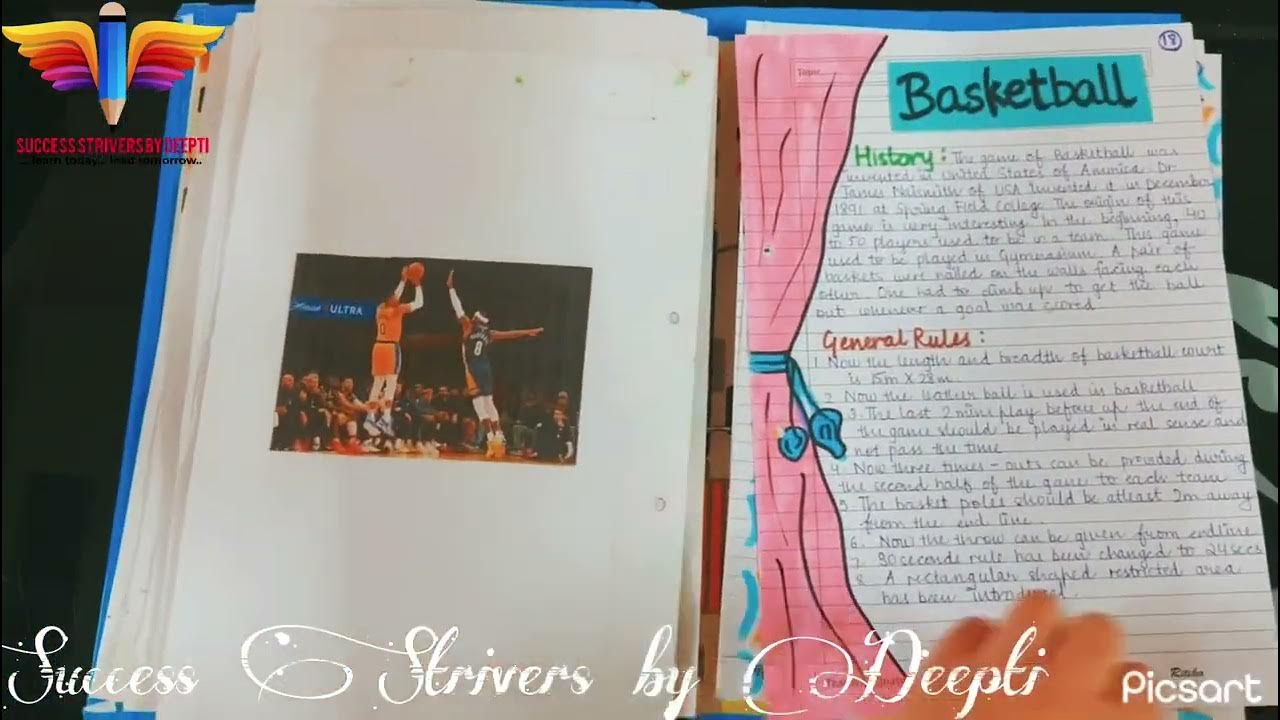 SUCCESS STRIVERS BY DEEPTI
... learn today... lead tomorrow..
ULTRA
0
8
18
Topic
Basketball
History: The game of Basketball was
invented in United States of America. Dr.
James Naismith of USA invented it in December
1891 at Spring Field College. The origin of this
game is very interesting. In the beginning, 40
to 50 players used to be in a team. This game
used to be played in Gymnasium. A pair of
baskets were nailed on the walls facing each
other. One had to climb up to get the ball
out whenever a goal was scored
General Rules:
1. Now the length and breadth of basketball court
is 15m X 28m.
2. Now the leather ball is used in basketball
3. The last 2 mins play before up the end of
the game should be played in real sense and
not pass the time
4. Now three times-outs can be provided during
the second half of the game to each team
5. The basket poles should be atleast 2m away
from the end line.
6. Now the throw can be given from endline
7. 30 seconds rule has been changed to 24 secs
8. A rectangular shaped restricted area
has been introduced.
Success Strivers by Deepti
Picsart